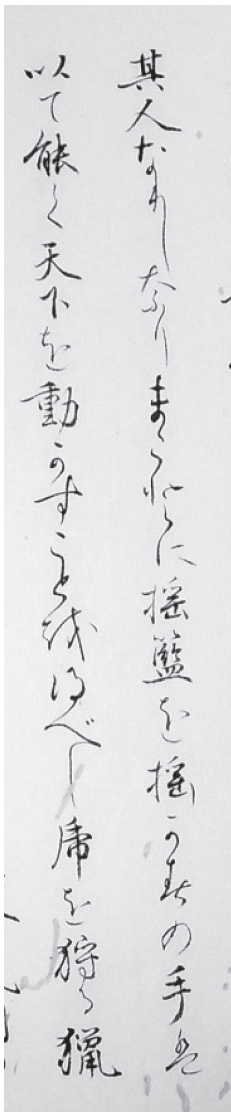 其人なかりしなりまことに揺籃を揺かすの手は
以て能く天下を動かすことを得べし虎を狩る猟